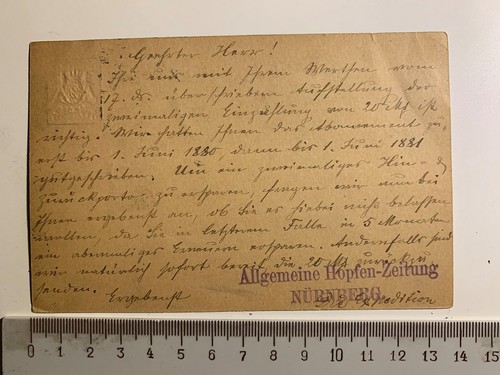 Geehrter Herr!
Ihre uns mit Ihrem Werthen vom
17. ds. überschriebene Aufstellung der
zweimaligen Einzahlung von 20 Mk ist
richtig. Wir hatten Ihnen das Abonnement zu
erst bis 1. Juni 1880, dann bis 1. Juni 1881
gutgeschrieben. Um ein zweimaliges Hin- &
zurückporto zu ersparen, fragen wir nun bei
Ihnen ergebenst an, ob Sie es hiebei nicht belassen
wollen, da Sie in letzterem Falle in 5 Monaten
ein abermaliges Erneuern ersparen. Andernfalls sind
wir natürlich sofort bereit die 20 Mk zurückzu
senden.
Ergebenst
Allgemeine Hopfen-Zeitung
NÜRNBERG.
Die Expedition
0 1 2 3 4 5 6 7 8 9 10 11 12 13 14 15